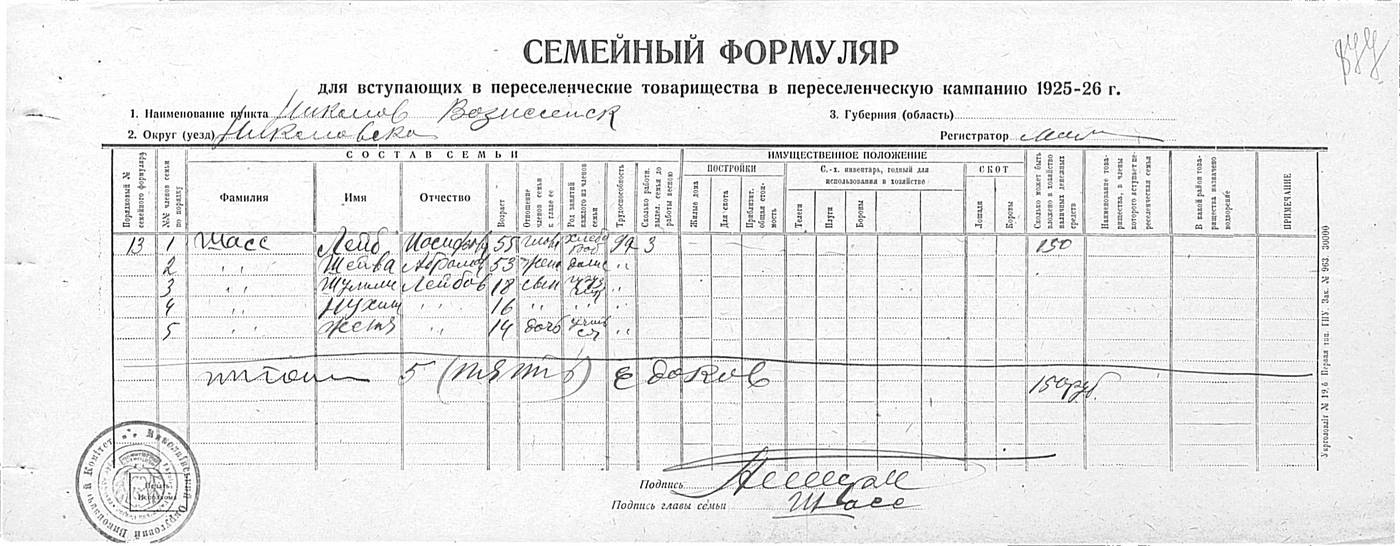 СЕМЕЙНЫЙ ФОРМУЛЯР
для вступающих в переселенческие товарищества в переселенческую кампанию 1925-26 г.
1. Наименование пункта Николов Вознесенск 3. Губерния (область)
2. Округ (уезд) Николовска Регистратор
СОСТАВ СЕМЬИ ИМУЩЕСТВЕННОЕ ПОЛОЖЕНИЕ
ПОСТРОЙКИ С.-х. инвентарь, годный для использования в хозяйстве СКОТ
Порядковый № семейного формуляра
№№ членов семьи по порядку
Фамилия
Имя
Отчество
Возраст
Отношение членов семьи к главе ее
Род занятий каждого из членов семьи
Трудоспособность
Сколько работн. выдел. семья до работы весною
Жилые дома
Для скота
Приблизит. общая стоимость
Телеги
Плуги
Бороны
Лошади
Коровы
Сколько может быть вложено в хозяйство наличных денежных средств
Наименование товарищества, в члены которого вступает переселенческая семья
В какой район товарищества назначено водворение
ПРИМЕЧАНИЕ
13 1 Шасс Лейб Иосифов 55 3 150
2 " " Шейва 53 жена "
3 " " Лейбов 18 сын "
4 " " Нухим " " 16 " " " "
5 " " Женя " " 14 дочь "
Итого 5 (пять) едоков 150 руб.
Подпись
Подпись главы семьи Шасс
Миколаївський Округовий Виконавчий Комітет
Укрголовліт № 19.6 Первая тип. ГПУ. Зак. № 963. 30000